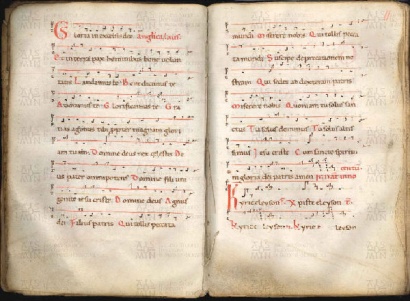 Gloria in excelsis deo Angelica laus
Et in terra pax hominibus bone volun
tatis Laudamus te Benedicimus te
Adoramus te Glorificamus te Gra
tias agimus tibi propter magnam glori
am tuam Domine deus rex celestis De
us pater omnipotens Domine fili uni
genite iesu criste Domine deus Agnus
dei Filius patris Qui tollis peccata
mundi Miserere nobis Qui tollis pecca
ta mundi Suscipe deprecationem no
stram Qui sedes ad dexteram patris
Miserere nobis Quoniam tu solus san
ctus Tu solus dominus Tu solus altis
simus Iesu criste Cum sancto spiritu
in gloria dei patris amen
Kyrieeleyson Xpisteeleyson K
Kyrie leyson Kyrie leyson